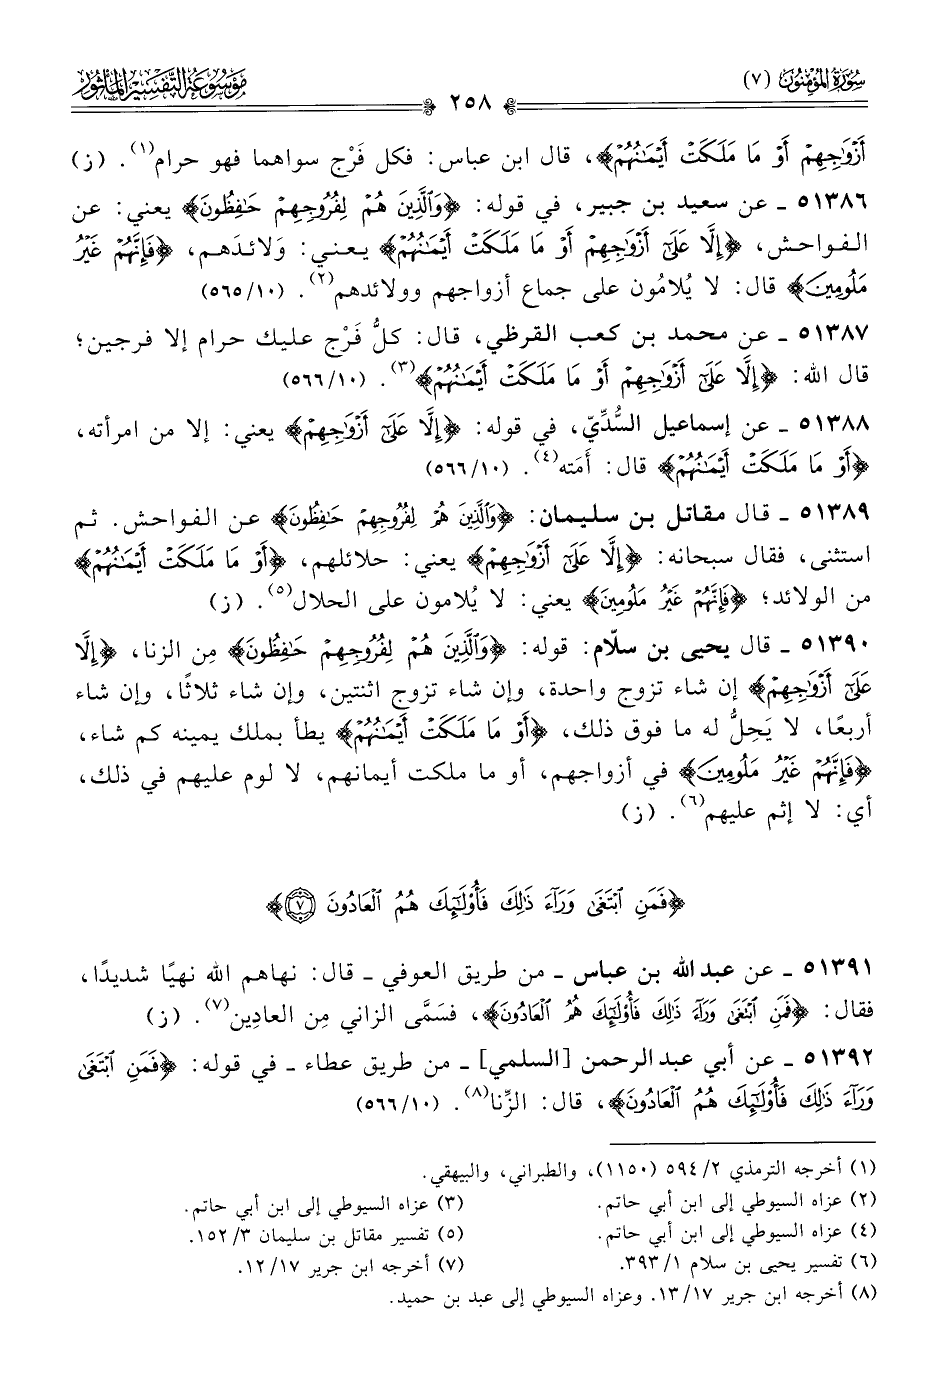 سُورَةُ المُؤْمِنُون (٧)
٢٥٨
مَوْسُوعَة التَّفْسِيْرِ المَأْثُور
أَزْوَٰجِهِمْ أَوْ مَا مَلَكَتْ أَيْمَـٰنُهُمْ﴾، قال ابن عباس: فكل فَرْج سواهما فهو حرام(١). (ز)
٥١٣٨٦ ـ عن سعيد بن جبير، في قوله: ﴿وَٱلَّذِينَ هُمْ لِفُرُوجِهِمْ حَـٰفِظُونَ﴾ يعني: عن
الفواحش، ﴿إِلَّا عَلَىٰٓ أَزْوَٰجِهِمْ أَوْ مَا مَلَكَتْ أَيْمَـٰنُهُمْ﴾ يعني: وَلائدَهم، ﴿فَإِنَّهُمْ غَيْرُ
مَلُومِينَ﴾ قال: لا يُلامُون على جماع أزواجهم وولائدهم(٢). (١٠/٥٦٥)
٥١٣٨٧ ـ عن محمد بن كعب القرظي، قال: كلُّ فَرْج عليك حرام إلا فرجين؛
قال الله: ﴿إِلَّا عَلَىٰٓ أَزْوَٰجِهِمْ أَوْ مَا مَلَكَتْ أَيْمَـٰنُهُمْ﴾(٣). (١٠/٥٦٦)
٥١٣٨٨ ـ عن إسماعيل السُّدِّيّ، في قوله: ﴿إِلَّا عَلَىٰٓ أَزْوَٰجِهِمْ﴾ يعني: إلا من امرأته،
﴿أَوْ مَا مَلَكَتْ أَيْمَـٰنُهُمْ﴾ قال: أَمَته(٤). (١٠/٥٦٦)
٥١٣٨٩ ـ قال مقاتل بن سليمان: ﴿وَٱلَّذِينَ هُمْ لِفُرُوجِهِمْ حَـٰفِظُونَ﴾ عن الفواحش. ثم
استثنى، فقال سبحانه: ﴿إِلَّا عَلَىٰٓ أَزْوَٰجِهِمْ﴾ يعني: حلائلهم، ﴿أَوْ مَا مَلَكَتْ أَيْمَـٰنُهُمْ﴾
من الولائد؛ ﴿فَإِنَّهُمْ غَيْرُ مَلُومِينَ﴾ يعني: لا يُلامون على الحلال(٥). (ز)
٥١٣٩٠ ـ قال يحيى بن سلّام: قوله: ﴿وَٱلَّذِينَ هُمْ لِفُرُوجِهِمْ حَـٰفِظُونَ﴾ مِن الزنا، ﴿إِلَّا
عَلَىٰٓ أَزْوَٰجِهِمْ﴾ إن شاء تزوج واحدة، وإن شاء تزوج اثنتين، وإن شاء ثلاثًا، وإن شاء
أربعًا، لا يَحِلُّ له ما فوق ذلك، ﴿أَوْ مَا مَلَكَتْ أَيْمَـٰنُهُمْ﴾ يطأ بملك يمينه كم شاء،
﴿فَإِنَّهُمْ غَيْرُ مَلُومِينَ﴾ في أزواجهم، أو ما ملكت أيمانهم، لا لوم عليهم في ذلك،
أي: لا إثم عليهم(٦). (ز)
﴿فَمَنِ ٱبْتَغَىٰ وَرَآءَ ذَٰلِكَ فَأُو۟لَـٰٓئِكَ هُمُ ٱلْعَادُونَ ٧﴾
٥١٣٩١ ـ عن عبد الله بن عباس ـ من طريق العوفي ـ قال: نهاهم الله نهيًا شديدًا،
فقال: ﴿فَمَنِ ٱبْتَغَىٰ وَرَآءَ ذَٰلِكَ فَأُو۟لَـٰٓئِكَ هُمُ ٱلْعَادُونَ﴾، فسَمَّى الزاني مِن العادِين(٧). (ز)
٥١٣٩٢ ـ عن أبي عبد الرحمن [السلمي] ـ من طريق عطاء ـ في قوله: ﴿فَمَنِ ٱبْتَغَىٰ
وَرَآءَ ذَٰلِكَ فَأُو۟لَـٰٓئِكَ هُمُ ٱلْعَادُونَ﴾، قال: الزِّنا(٨). (١٠/٥٦٦)
(١) أخرجه الترمذي ٢/ ٥٩٤ (١١٥٠)، والطبراني، والبيهقي.
(٢) عزاه السيوطي إلى ابن أبي حاتم.
(٣) عزاه السيوطي إلى ابن أبي حاتم.
(٤) عزاه السيوطي إلى ابن أبي حاتم.
(٥) تفسير مقاتل بن سليمان ٣/ ١٥٢.
(٦) تفسير يحيى بن سلام ١/ ٣٩٣.
(٧) أخرجه ابن جرير ١٧/ ١٢.
(٨) أخرجه ابن جرير ١٧/ ١٣. وعزاه السيوطي إلى عبد بن حميد.